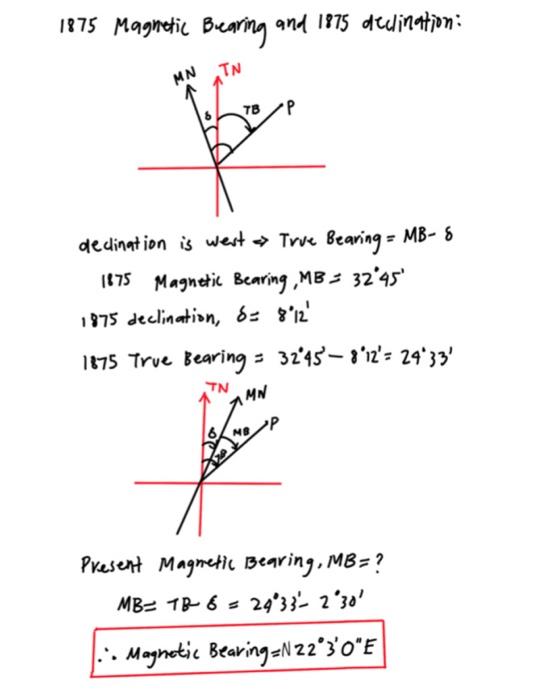 1875 Magnetic Bearing and 1875 declination:
MN
TN
δ
TB
P
declination is west ⇒ True Bearing = MB- δ
1875 Magnetic Bearing, MB = 32°45'
1875 declination, δ= 8°12'
1875 True Bearing = 32°45' - 8°12' = 24°33'
TN
MN
P
δ
MB
TB
Present Magnetic Bearing, MB=?
MB= TB- δ = 24°33'- 2°30'
∴ Magnetic Bearing=N22°3'0"E